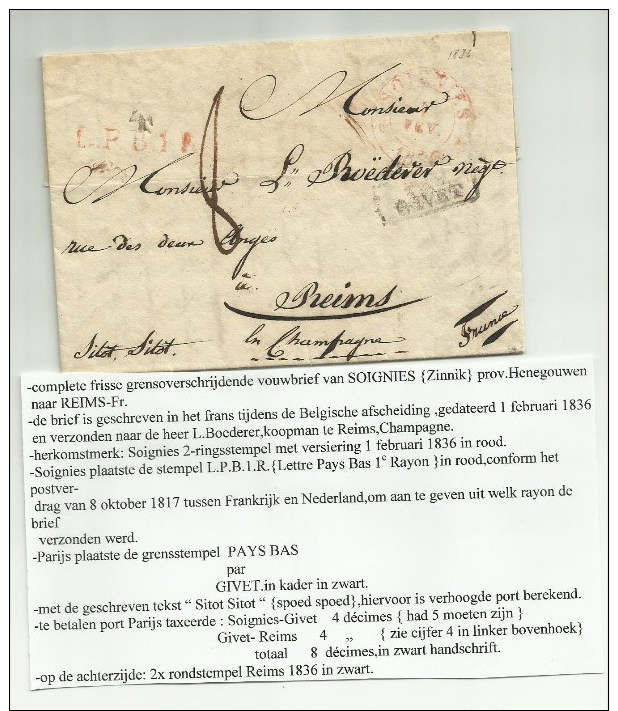 1836
Monsieur
4
L.P.B.1.R
SOIGNIES
FEV.
1836
8
Monsieur Ln Roëderer negt.
GIVET
rue des deux Anges
à
Reims
Sitot, Sitot. En Champagne France
-complete frisse grensoverschrijdende vouwbrief van SOIGNIES {Zinnik} prov.Henegouwen
naar REIMS-Fr.
-de brief is geschreven in het frans tijdens de Belgische afscheiding ,gedateerd 1 februari 1836
en verzonden naar de heer L.Boederer,koopman te Reims,Champagne.
-herkomstmerk: Soignies 2-ringsstempel met versiering 1 februari 1836 in rood.
-Soignies plaatste de stempel L.P.B.1.R.{Lettre Pays Bas 1e Rayon }in rood,conform het
postver-
drag van 8 oktober 1817 tussen Frankrijk en Nederland,om aan te geven uit welk rayon de
brief
verzonden werd.
-Parijs plaatste de grensstempel PAYS BAS
par
GIVET.in kader in zwart.
-met de geschreven tekst “ Sitot Sitot ” {spoed spoed},hiervoor is verhoogde port berekend.
-te betalen port Parijs taxeerde : Soignies-Givet 4 décimes { had 5 moeten zijn }
Givet- Reims 4 „ { zie cijfer 4 in linker bovenhoek}
totaal 8 décimes,in zwart handschrift.
-op de achterzijde: 2x rondstempel Reims 1836 in zwart.